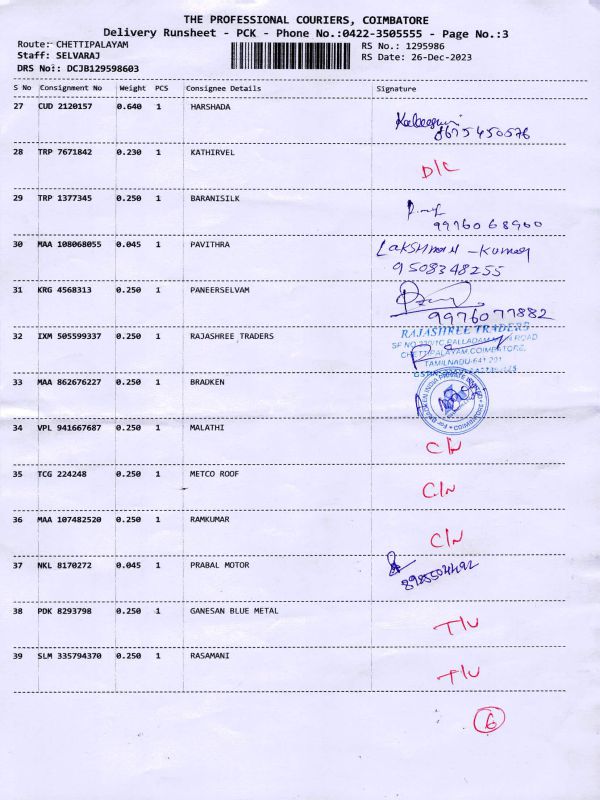 THE PROFESSIONAL COURIERS, COIMBATORE
Delivery Runsheet - PCK - Phone No.:0422-3505555 - Page No.:3
Route: CHETTIPALAYAM RS No.: 1295986
Staff: SELVARAJ RS Date: 26-Dec-2023
DRS No:: DCJB129598603
S No Consignment No Weight PCS Consignee Details Signature
27 CUD 2120157 0.640 1 HARSHADA
8675450576
28 TRP 7671842 0.230 1 KATHIRVEL D/C
29 TRP 1377345 0.250 1 BARANISILK
9976068900
30 MAA 108068055 0.045 1 PAVITHRA LAKSHMAN - KUMAR
9508348255
31 KRG 4568313 0.250 1 PANEERSELVAM
9976077882
32 IXM 505599337 0.250 1 RAJASHREE TRADERS RAJASHREE TRADERS
CHETTIPALAYAM, COIMBATORE,
TAMILNADU-641 201
33 MAA 862676227 0.250 1 BRADKEN
34 VPL 941667687 0.250 1 MALATHI C/N
35 TCG 224248 0.250 1 METCO ROOF C/N
36 MAA 107482520 0.250 1 RAMKUMAR C/N
37 NKL 8170272 0.045 1 PRABAL MOTOR
38 PDK 8293798 0.250 1 GANESAN BLUE METAL T/U
39 SLM 335794370 0.250 1 RASAMANI T/U
6